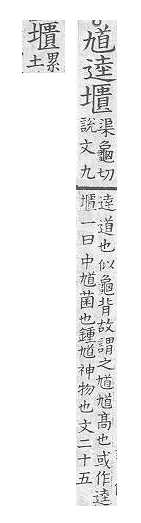 馗逵
渠龜切說文九
逵道也似龜背故謂之馗馗高也或作逵
一曰中馗菌也鍾馗神物也文二十五
土累